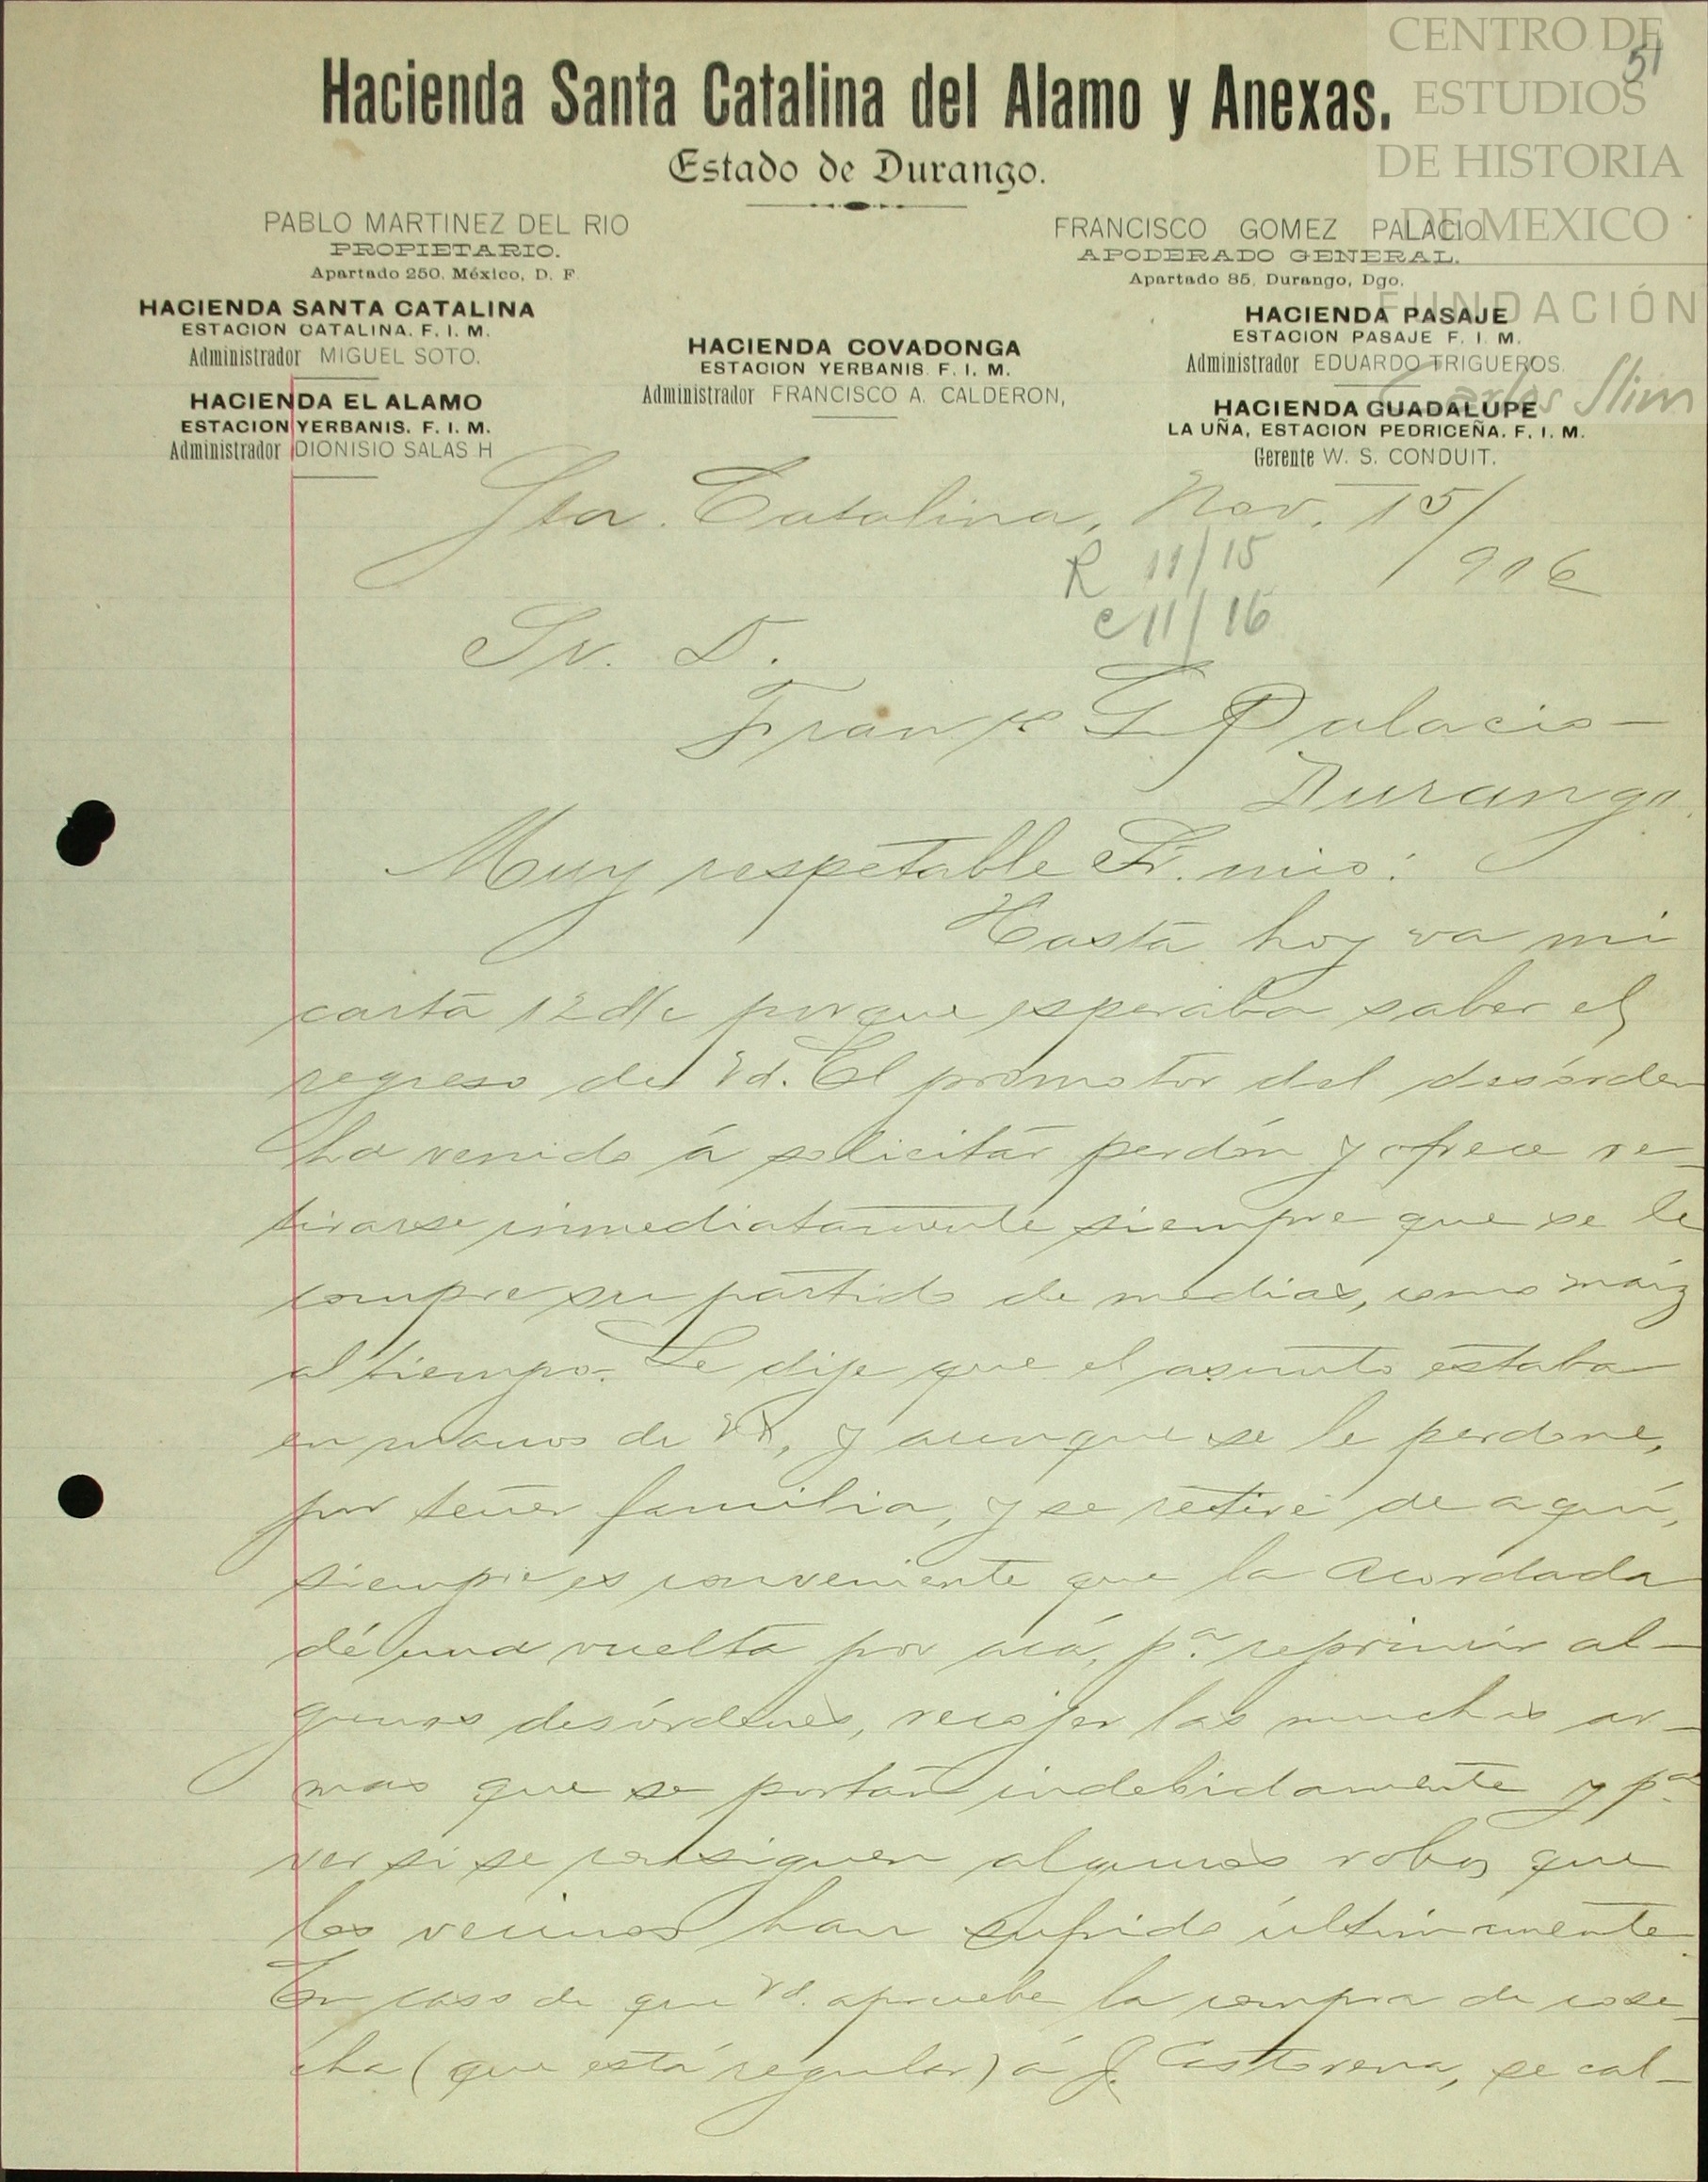 CENTRO DE
ESTUDIOS
DE HISTORIA
DE MEXICO
FUNDACIÓN
Carlos Slim
51
Hacienda Santa Catalina del Alamo y Anexas.
Estado de Durango.
PABLO MARTINEZ DEL RIO
PROPIETARIO.
Apartado 250. México, D. F
FRANCISCO GOMEZ PALACIO
APODERADO GENERAL.
Apartado 85, Durango, Dgo.
HACIENDA SANTA CATALINA
ESTACION CATALINA. F. I. M.
Administrador MIGUEL SOTO.
HACIENDA EL ALAMO
ESTACION YERBANIS. F. I. M.
Administrador DIONISIO SALAS H
HACIENDA COVADONGA
ESTACION YERBANIS F. I. M.
Administrador FRANCISCO A. CALDERON,
HACIENDA PASAJE
ESTACION PASAJE F. I. M.
Administrador EDUARDO TRIGUEROS.
HACIENDA GUADALUPE
LA UÑA, ESTACION PEDRICEÑA. F. I. M.
Gerente W. S. CONDUIT.
Sta. Catalina, Nov. 15/
/906
R 11/15
c 11/16
Sr. D.
Frank G Palacio—
Durango.
Muy respetable Sr. mio:
Hasta hoy va mi
carta 12 d/c porque esperaba saber el
regreso de Vd. El promotor del desórden
ha venido á solicitár perdón y ofrece re-
tirarse inmediatamente siempre que se le
compre su partido de medias, como maíz
al tiempo. Le dije que el asunto estaba
en manos de Vd, y aunque se le perdone,
por tener familia, y se retire de aquí,
siempre es conveniente que la Acordada
dé una vuelta por acá, pa. reprimir al-
gunos desórdenes, recojer las muchas ar-
mas que se portan indebidamente y pa.
ver si se consiguen algunos robos que
los vecinos han sufrido últimamente.
En caso de que Vd. apruebe la compra de cose-
cha (que está regular) á J. Castorena, se cal-